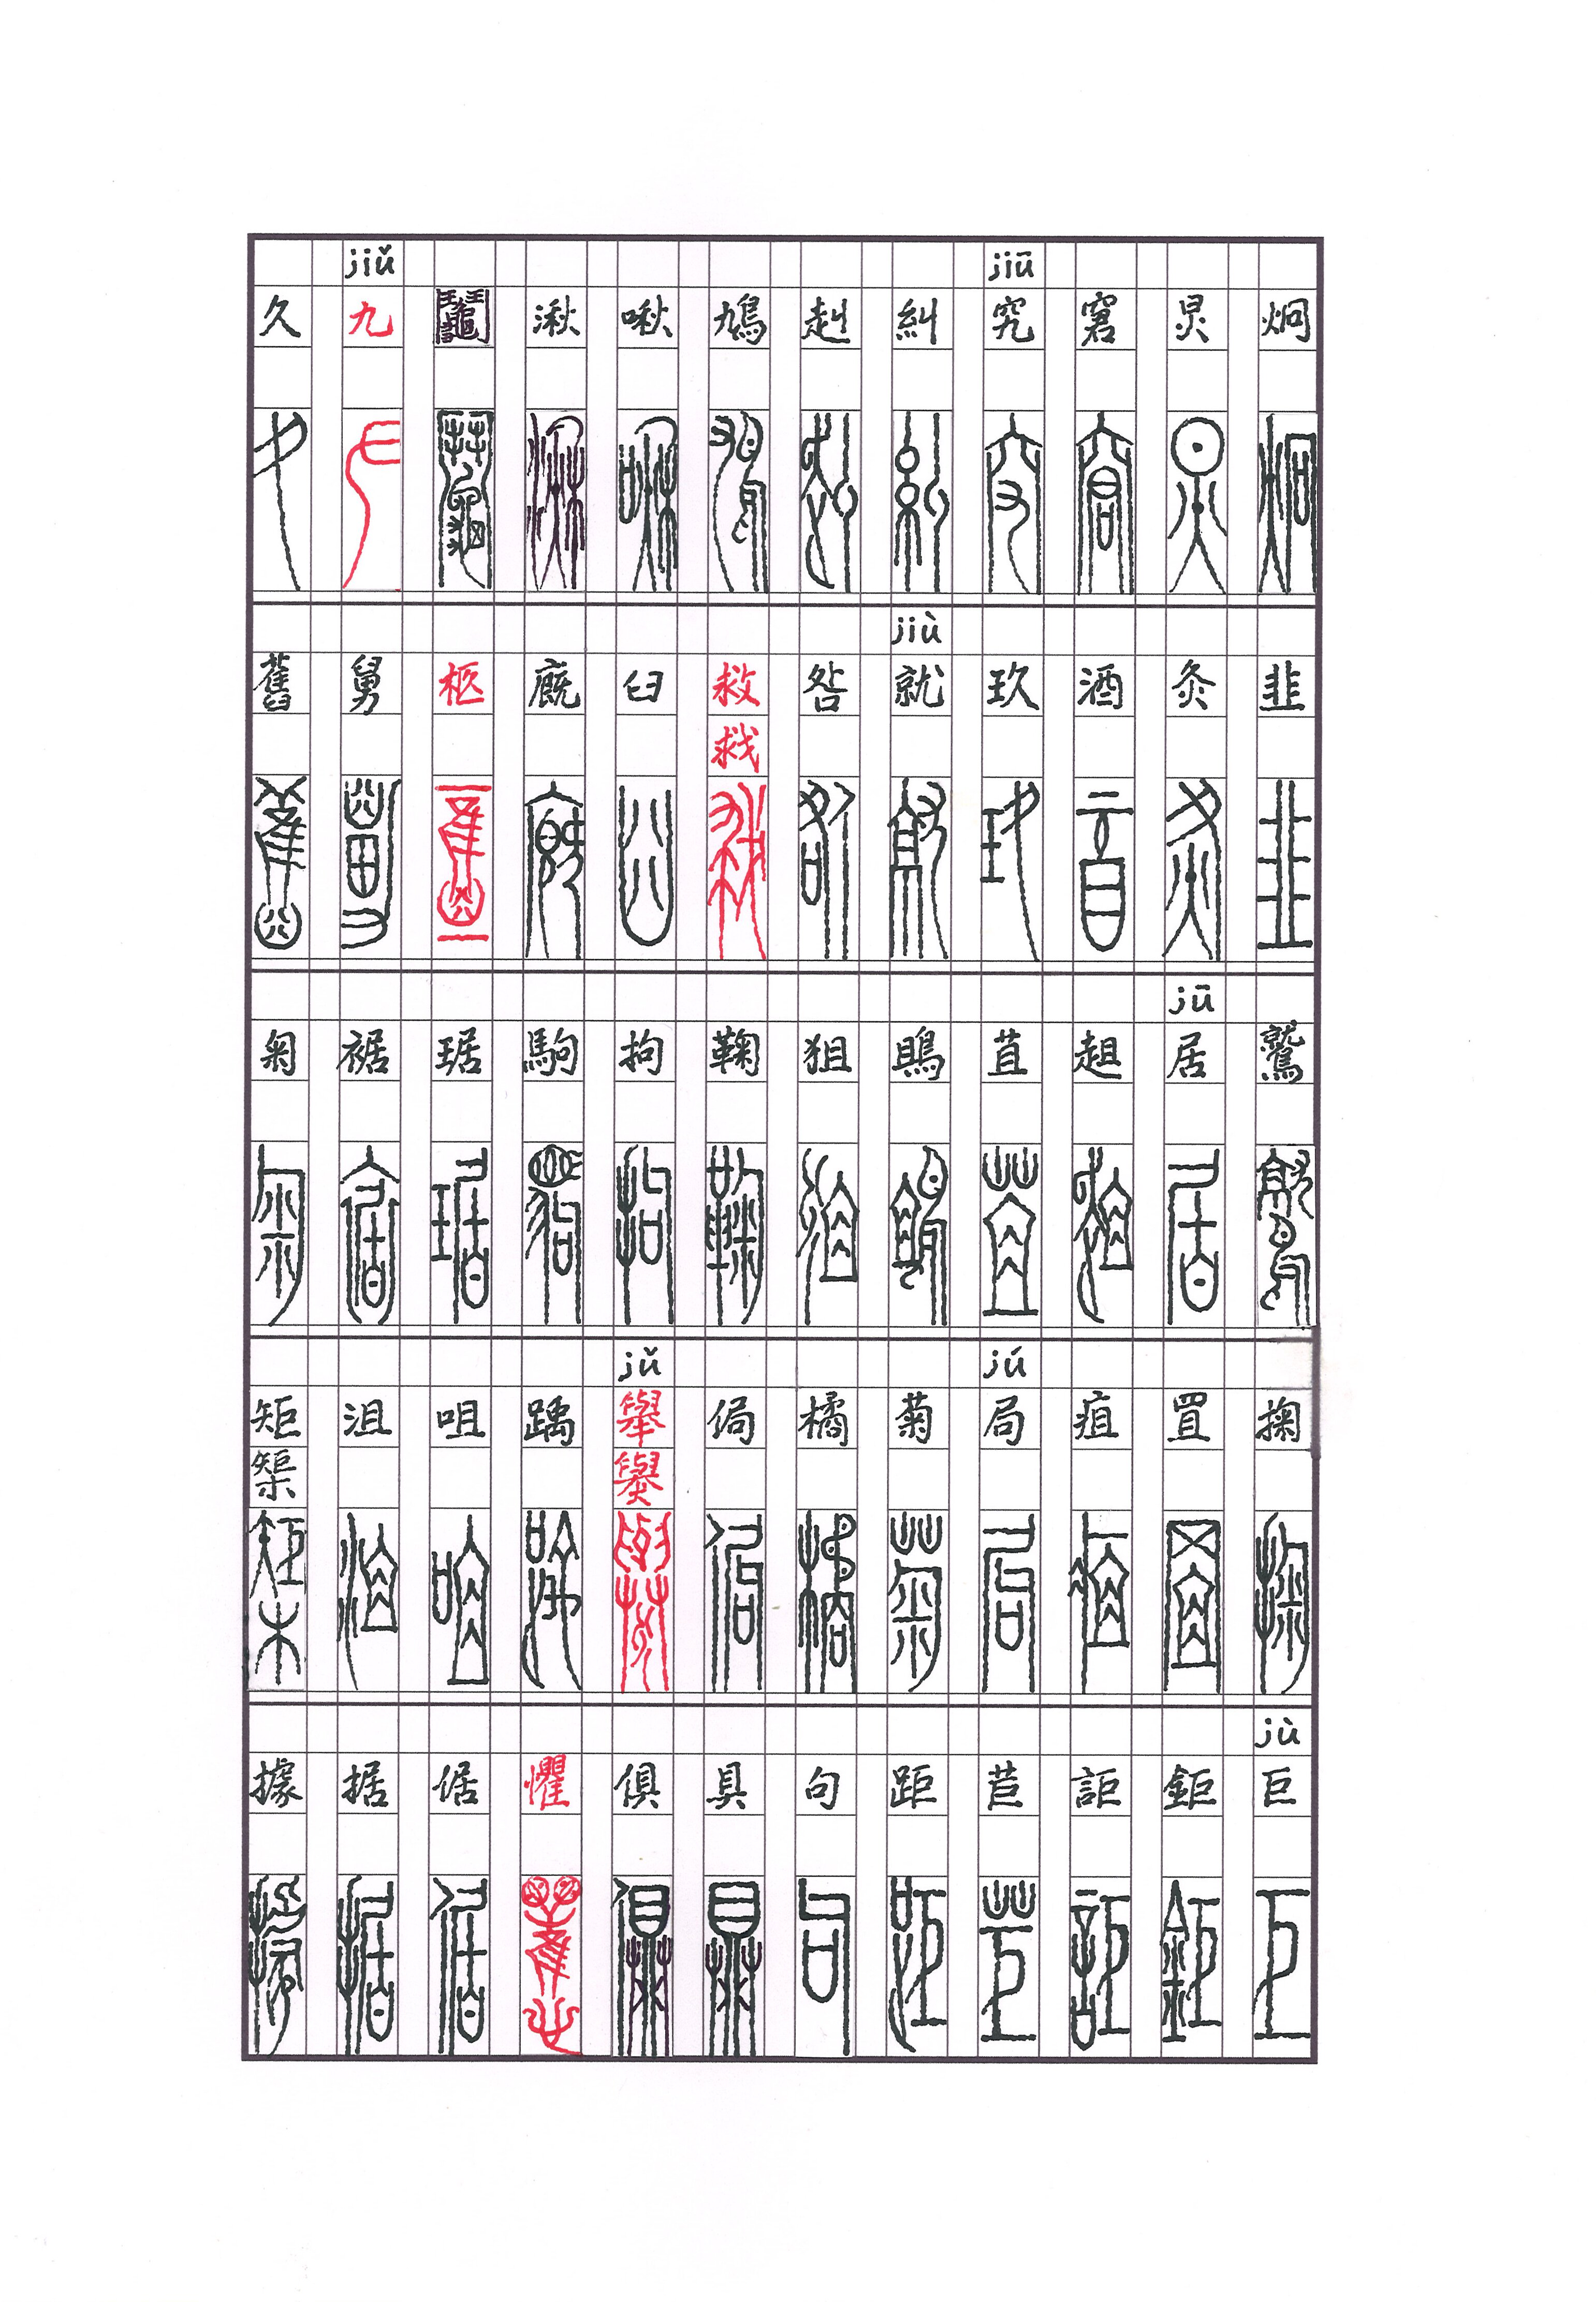 jiū jiǔ
炯 炅 窘 究 糾 赳 鳩 啾 湫 鬮 九 久
jiù
韭 灸 酒 玖 就 咎 救 臼 廐 柩 舅 舊
jū
鷲 居 趄 苴 鴡 狙 鞠 拘 駒 琚 裾 匊
jú jǔ
掬 罝 疽 局 菊 橘 侷 舉 踽 咀 沮 矩
榘
jù
巨 鉅 詎 苣 距 句 具 俱 懼 倨 据 據